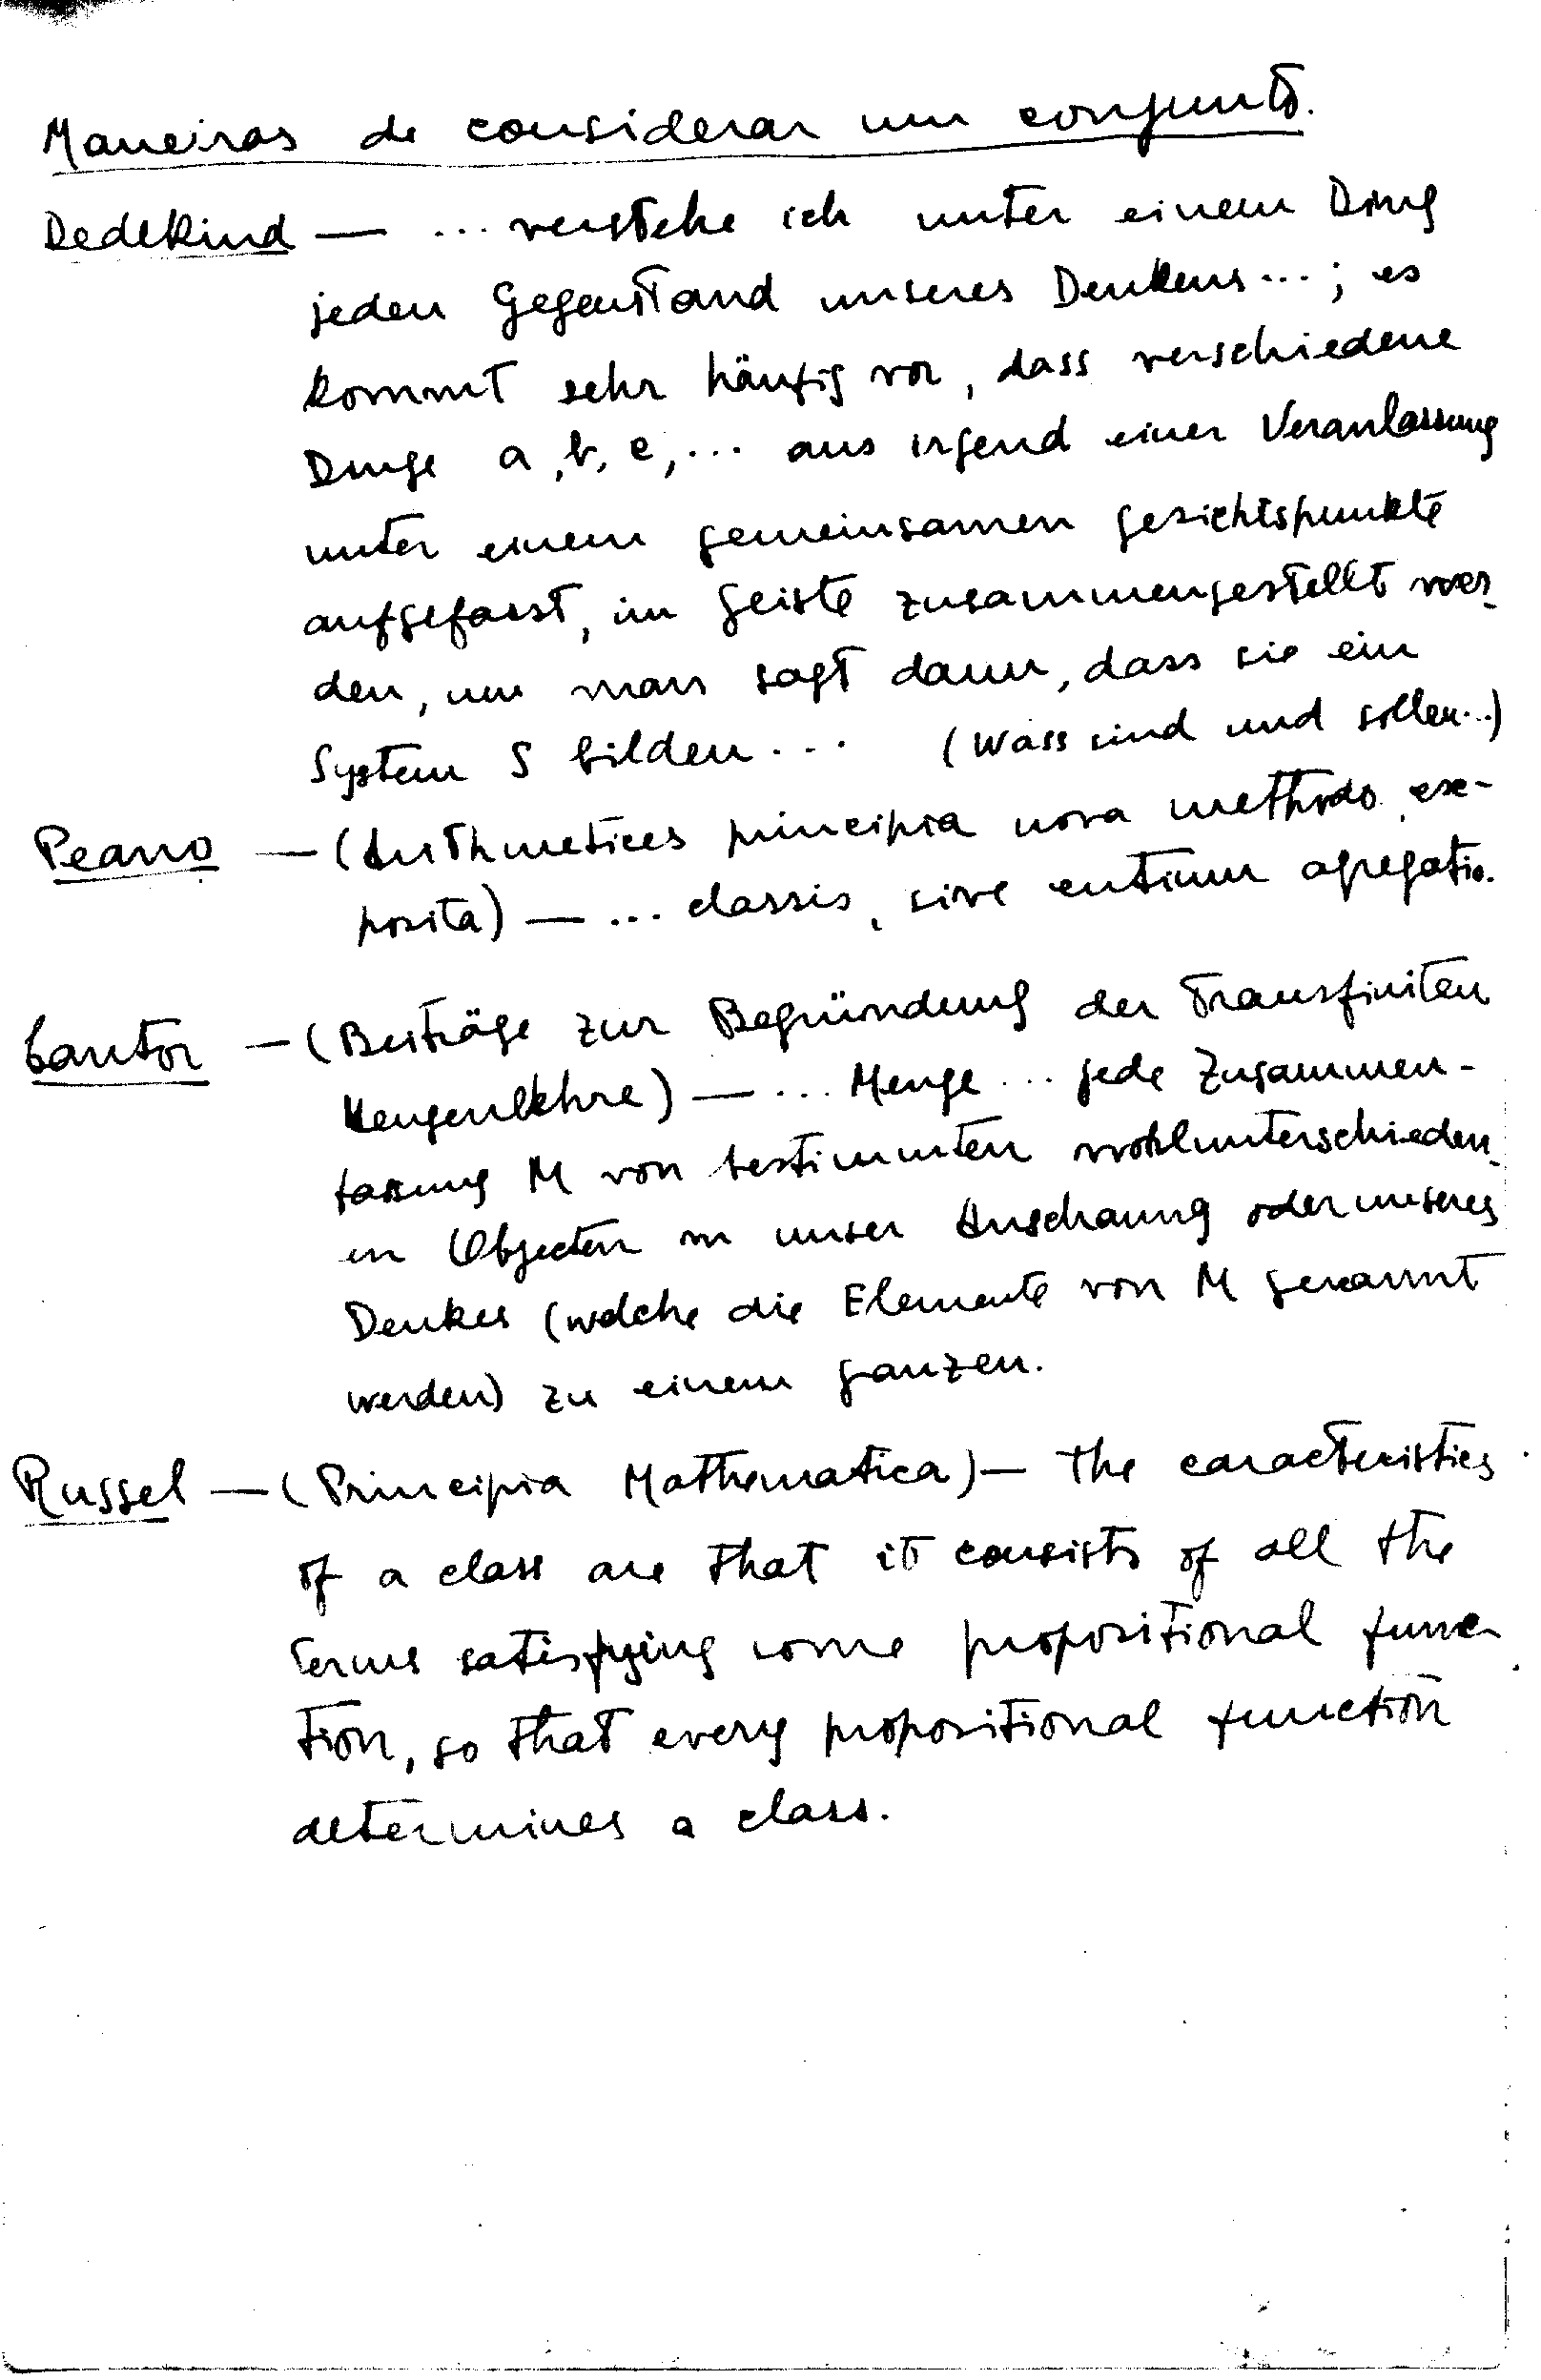 Maneiras de considerar um conjunto.
Dedekind — ... verstehe ich unter einem Ding
jeden Gegenstand unseres Denkens...; es
kommt sehr häufig vor, dass verschiedene
Dinge a, b, c, ... aus irgend einer Veranlassung
unter einem gemeinsamen gesichtspunkte
aufgefasst, im geiste zusammengestellt wer-
den, um man sagt dann, dass sie ein
System S bilden ... (Wass sind und sollen...)
Peano — (Arithmetices principia nova methodo exe-
posita) — ... classis, sive entium agregatio.
Cantor — (Beiträge zur Begründung der Transfiniten
Mengenlehre) — ... Menge ... jede Zusammen-
fassung M von bestimmten wohlunterschieden-
en Objecten in unser Anschauung oder unseres
Denkes (welche die Elemente von M genannt
werden) zu einem ganzen.
Russel — (Principia Mathematica) — The caracteristics
of a class are that it consists of all the
terms satisfying some propositional func-
tion, so that every propositional function
determines a class.